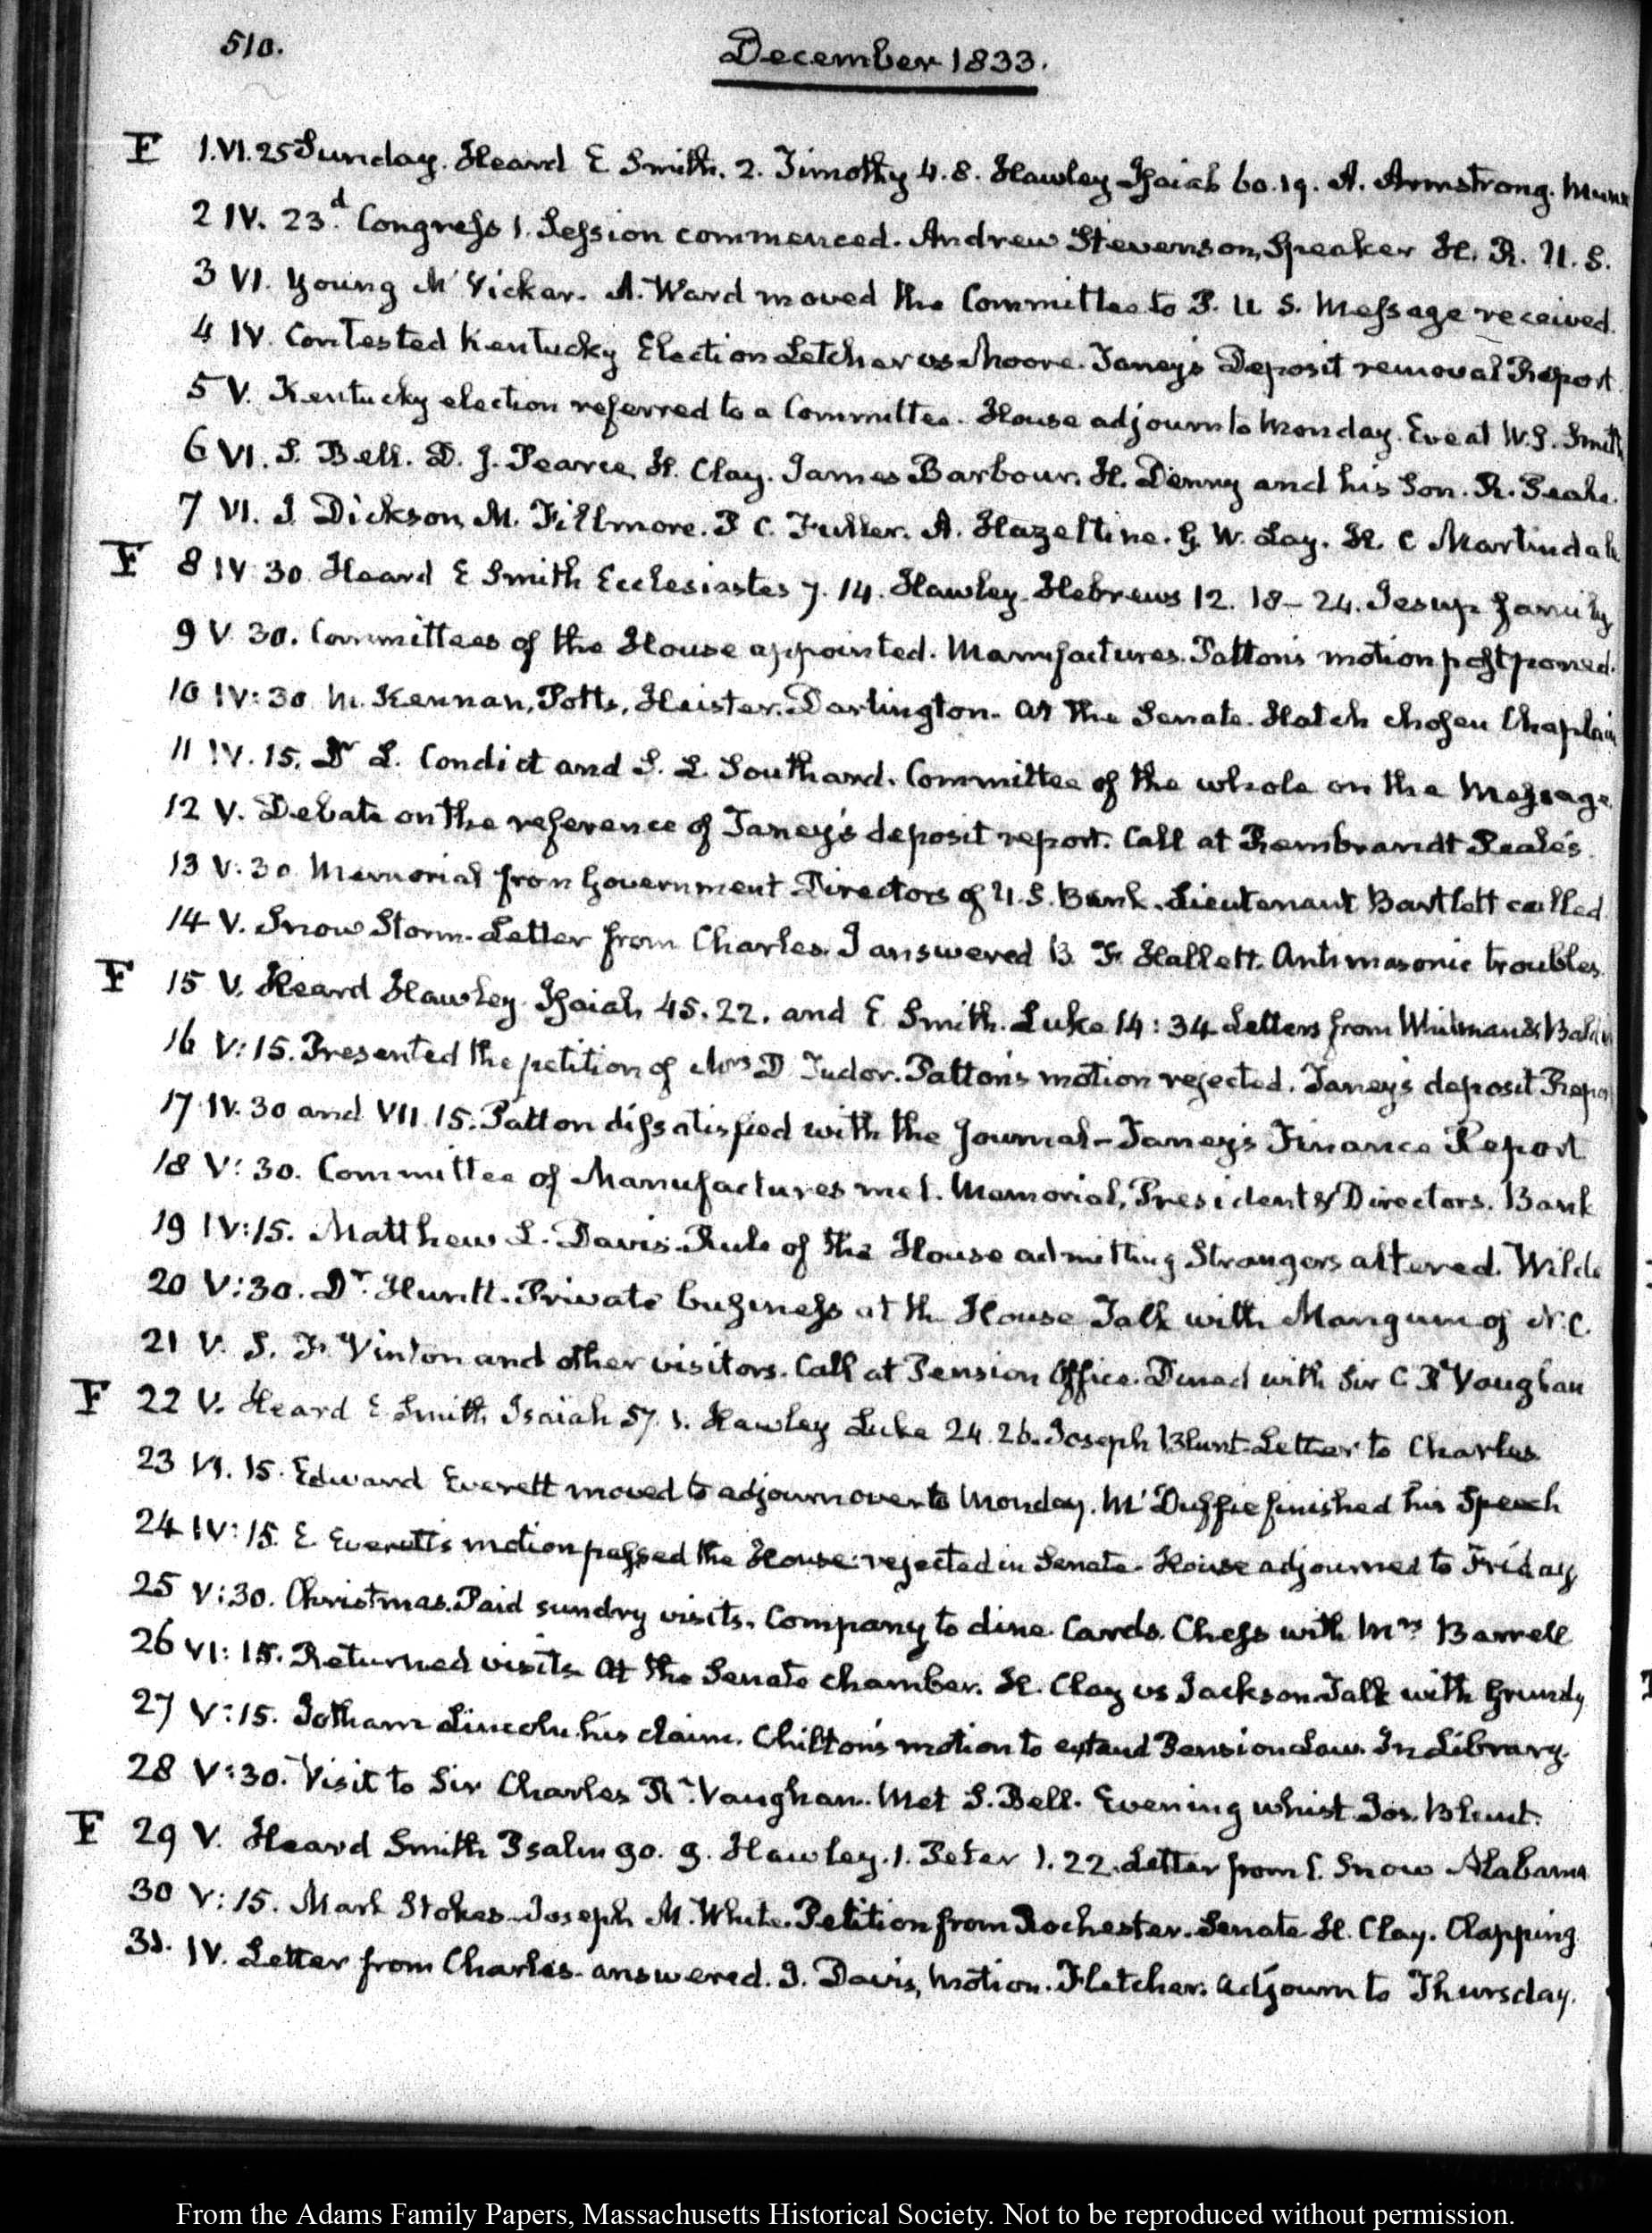 510.
December 1833.
F 1. VI. 25 Sunday. Heard E Smith. 2. Timothy 4. 8. Hawley Isaiah 60. 19. A. Armstrong.
2 IV. 23d. Congress 1. Session commenced. Andrew Stevenson, Speaker H. R. U. S.
3 VI. Young Mc Vickar. A. Ward moved the Committee to P. U S. Message received.
4 IV. Contested Kentucky Election Letcher vs Moore. Taney's Deposit removal Report.
5 V. Kentucky election referred to a Committee. House adjourn to Monday. Eve at W. S. Smith
6 VI. S. Bell. D. J. Pearce, H. Clay. James Barbour. H. Denny and his Son. R. Peale.
7 VI. J. Dickson, M. Fillmore. P C. Fuller. A. Hazeltine. G. W. Lay. H. C Martindale
F 8 IV 30. Heard E Smith Ecclesiastes 7. 14. Hawley. Hebrews 12. 18–24. Jesup family
9 V 30. Committees of the House appointed. Manufactures. Patton's motion postponed.
10 IV:30. M. Kennan, Potts, Heister, Darlington. At the Senate. Hatch chosen Chaplain
11 IV. 15. Dr L. Condict and S. L. Southard. Committee of the whole on the Message.
12 V. Debate on the reference of Taney's deposit report. Call at Rembrandt Peale's.
13 V:30 Memorial from Government Directors of U. S. Bank. Lieutenant Bartlett called.
14 V. Snow Storm. Letter from Charles. I answered B. F. Hallett. Antimasonic troubles.
F 15 V. Heard Hawley. Isaiah, 45. 22. and E Smith. Luke 14:34 Letters from
16 V:15. Presented the petition of Mrs D Tudor. Patton's motion rejected. Taney's deposit Report
17 IV. 30 and VII. 15. Patton dissatisfied with the Journal – Taney's Finance Report
18 V:30. Committee of Manufactures met. Memorial, President & Directors. Bank
19 IV:15. Matthew L. Davis. Rule of the House admitting Strangers altered. Wilde
20 V:30. Dr. Huntt. Private business at the House Talk with Mangum of N. C.
21 V. S. F. Vinton and other visitors. Call at Pension Office. Dined with Sir C R Vaughan
F 22 V. Heard E Smith Isaiah 57. 1. Hawley Luke 24. 26. Joseph Blunt. Letter to Charles
23 VI. 15. Edward Everett moved to adjourn over to Monday. McDuffie finished his Speech
24 IV:15. E. Everett's motion passed the House: rejected in Senate. House adjourned to Friday
25 V:30. Christmas. Paid sundry visits. Company to dine. Cards. Chess with Mrs Barrell
26 VI:15. Returned visits. At the Senate chamber. H. Clay vs Jackson. Talk with Grundy
27 V:15. Jotham Lincoln his claim. Chilton's motion to extend Pension Law. In Library.
28 V:30. Visit to Sir Charles R. Vaughan. Met S. Bell. Evening whist Jos. Blunt.
F 29 V. Heard Smith Psalm 90. 9. Hawley. 1. Peter 1. 22. Letter from C. Snow Alabama
30 V:15. Mark Stokes. Joseph M. White. Petition from Rochester. Senate H. Clay. Clapping
31. IV. Letter from Charles. answered. J. Davis, Motion. Fletcher. Adjourn to Thursday.
From the Adams Family Papers, Massachusetts Historical Society. Not to be reproduced without permission.